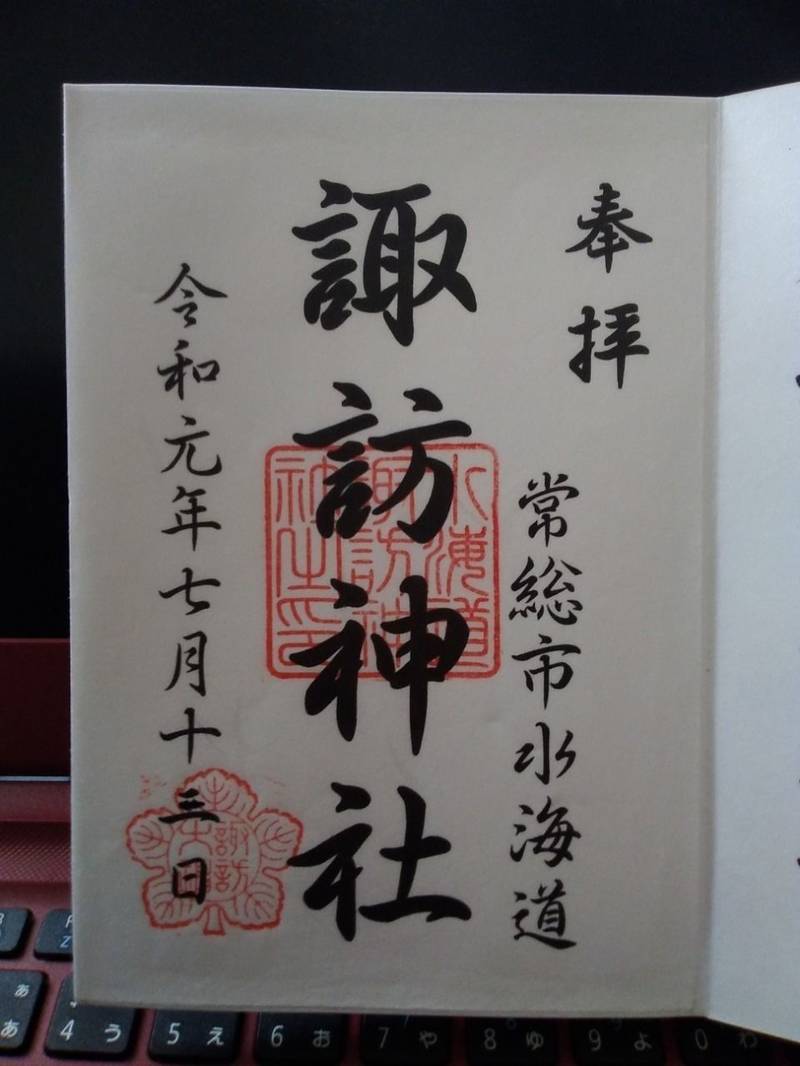 奉拝
常総市水海道
諏訪神社
水海道
諏訪神
社之印
令和元年七月十三日
諏訪
大
4 う
5 え
6 お
7 や
8 ゆ
9 よ
0 わ
あ
ぁ
Z